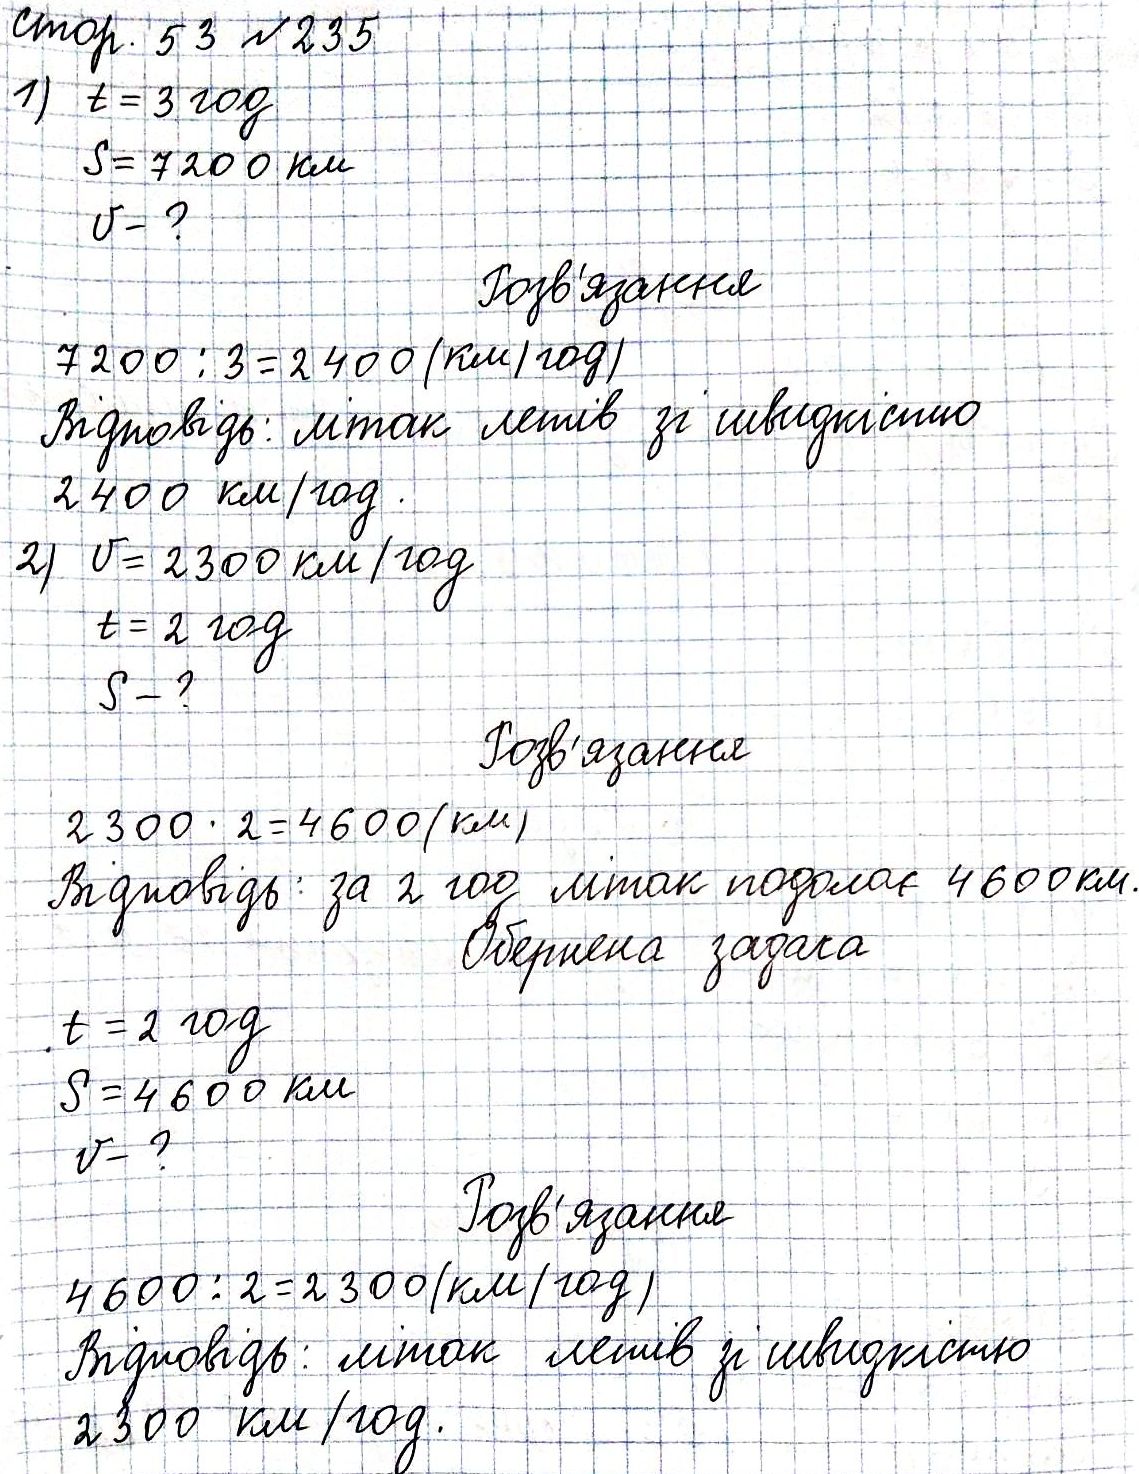 стор. 53 №235
1) t = 3 год
S = 7200 км
v - ?
Розв'язання
7200 : 3 = 2400 (км/год)
Відповідь: літак летів зі швидкістю
2400 км/год.
2) v = 2300 км/год
t = 2 год
S - ?
Розв'язання
2300 · 2 = 4600 (км)
Відповідь: за 2 год літак подолає 4600 км.
Обернена задача
t = 2 год
S = 4600 км
v - ?
Розв'язання
4600 : 2 = 2300 (км/год)
Відповідь: літак летів зі швидкістю
2300 км/год.